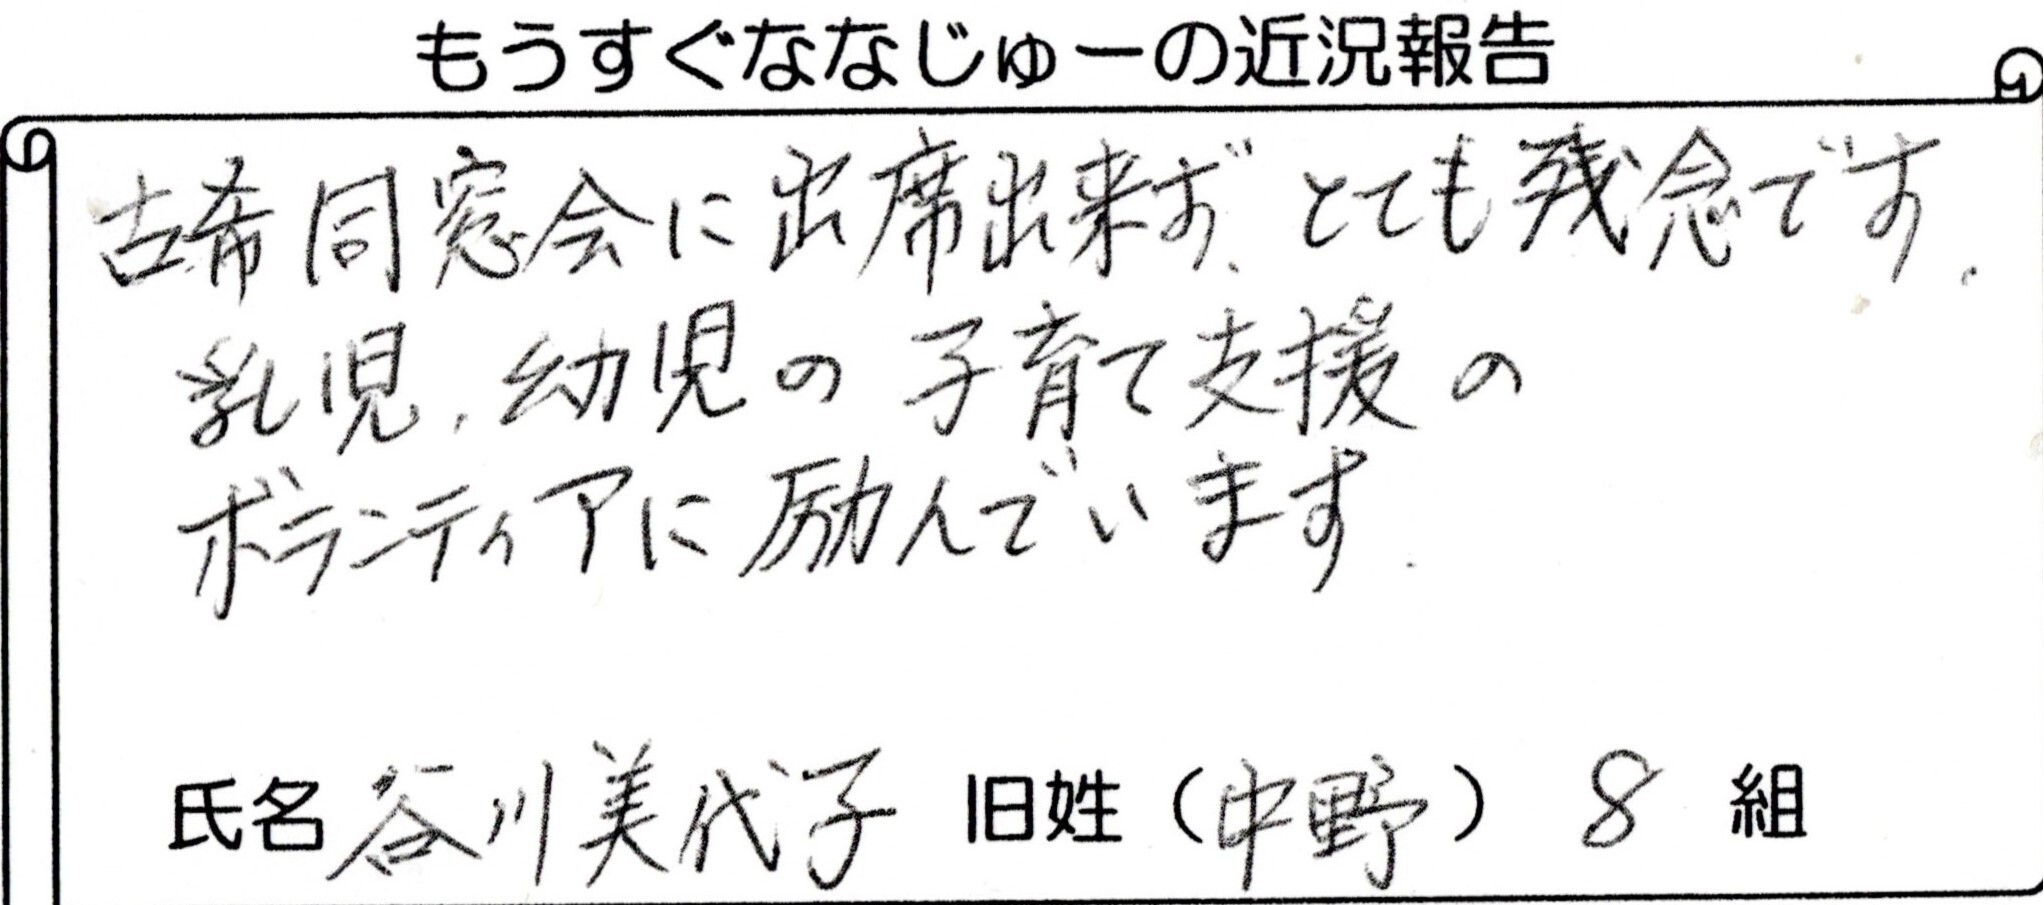 もうすぐななじゅーの近況報告
古希同窓会に出席出来ず、とても残念です.
乳児、幼児の子育て支援の
ボランティアに励んでいます.
氏名 谷川美代子 旧姓（中野） 8 組